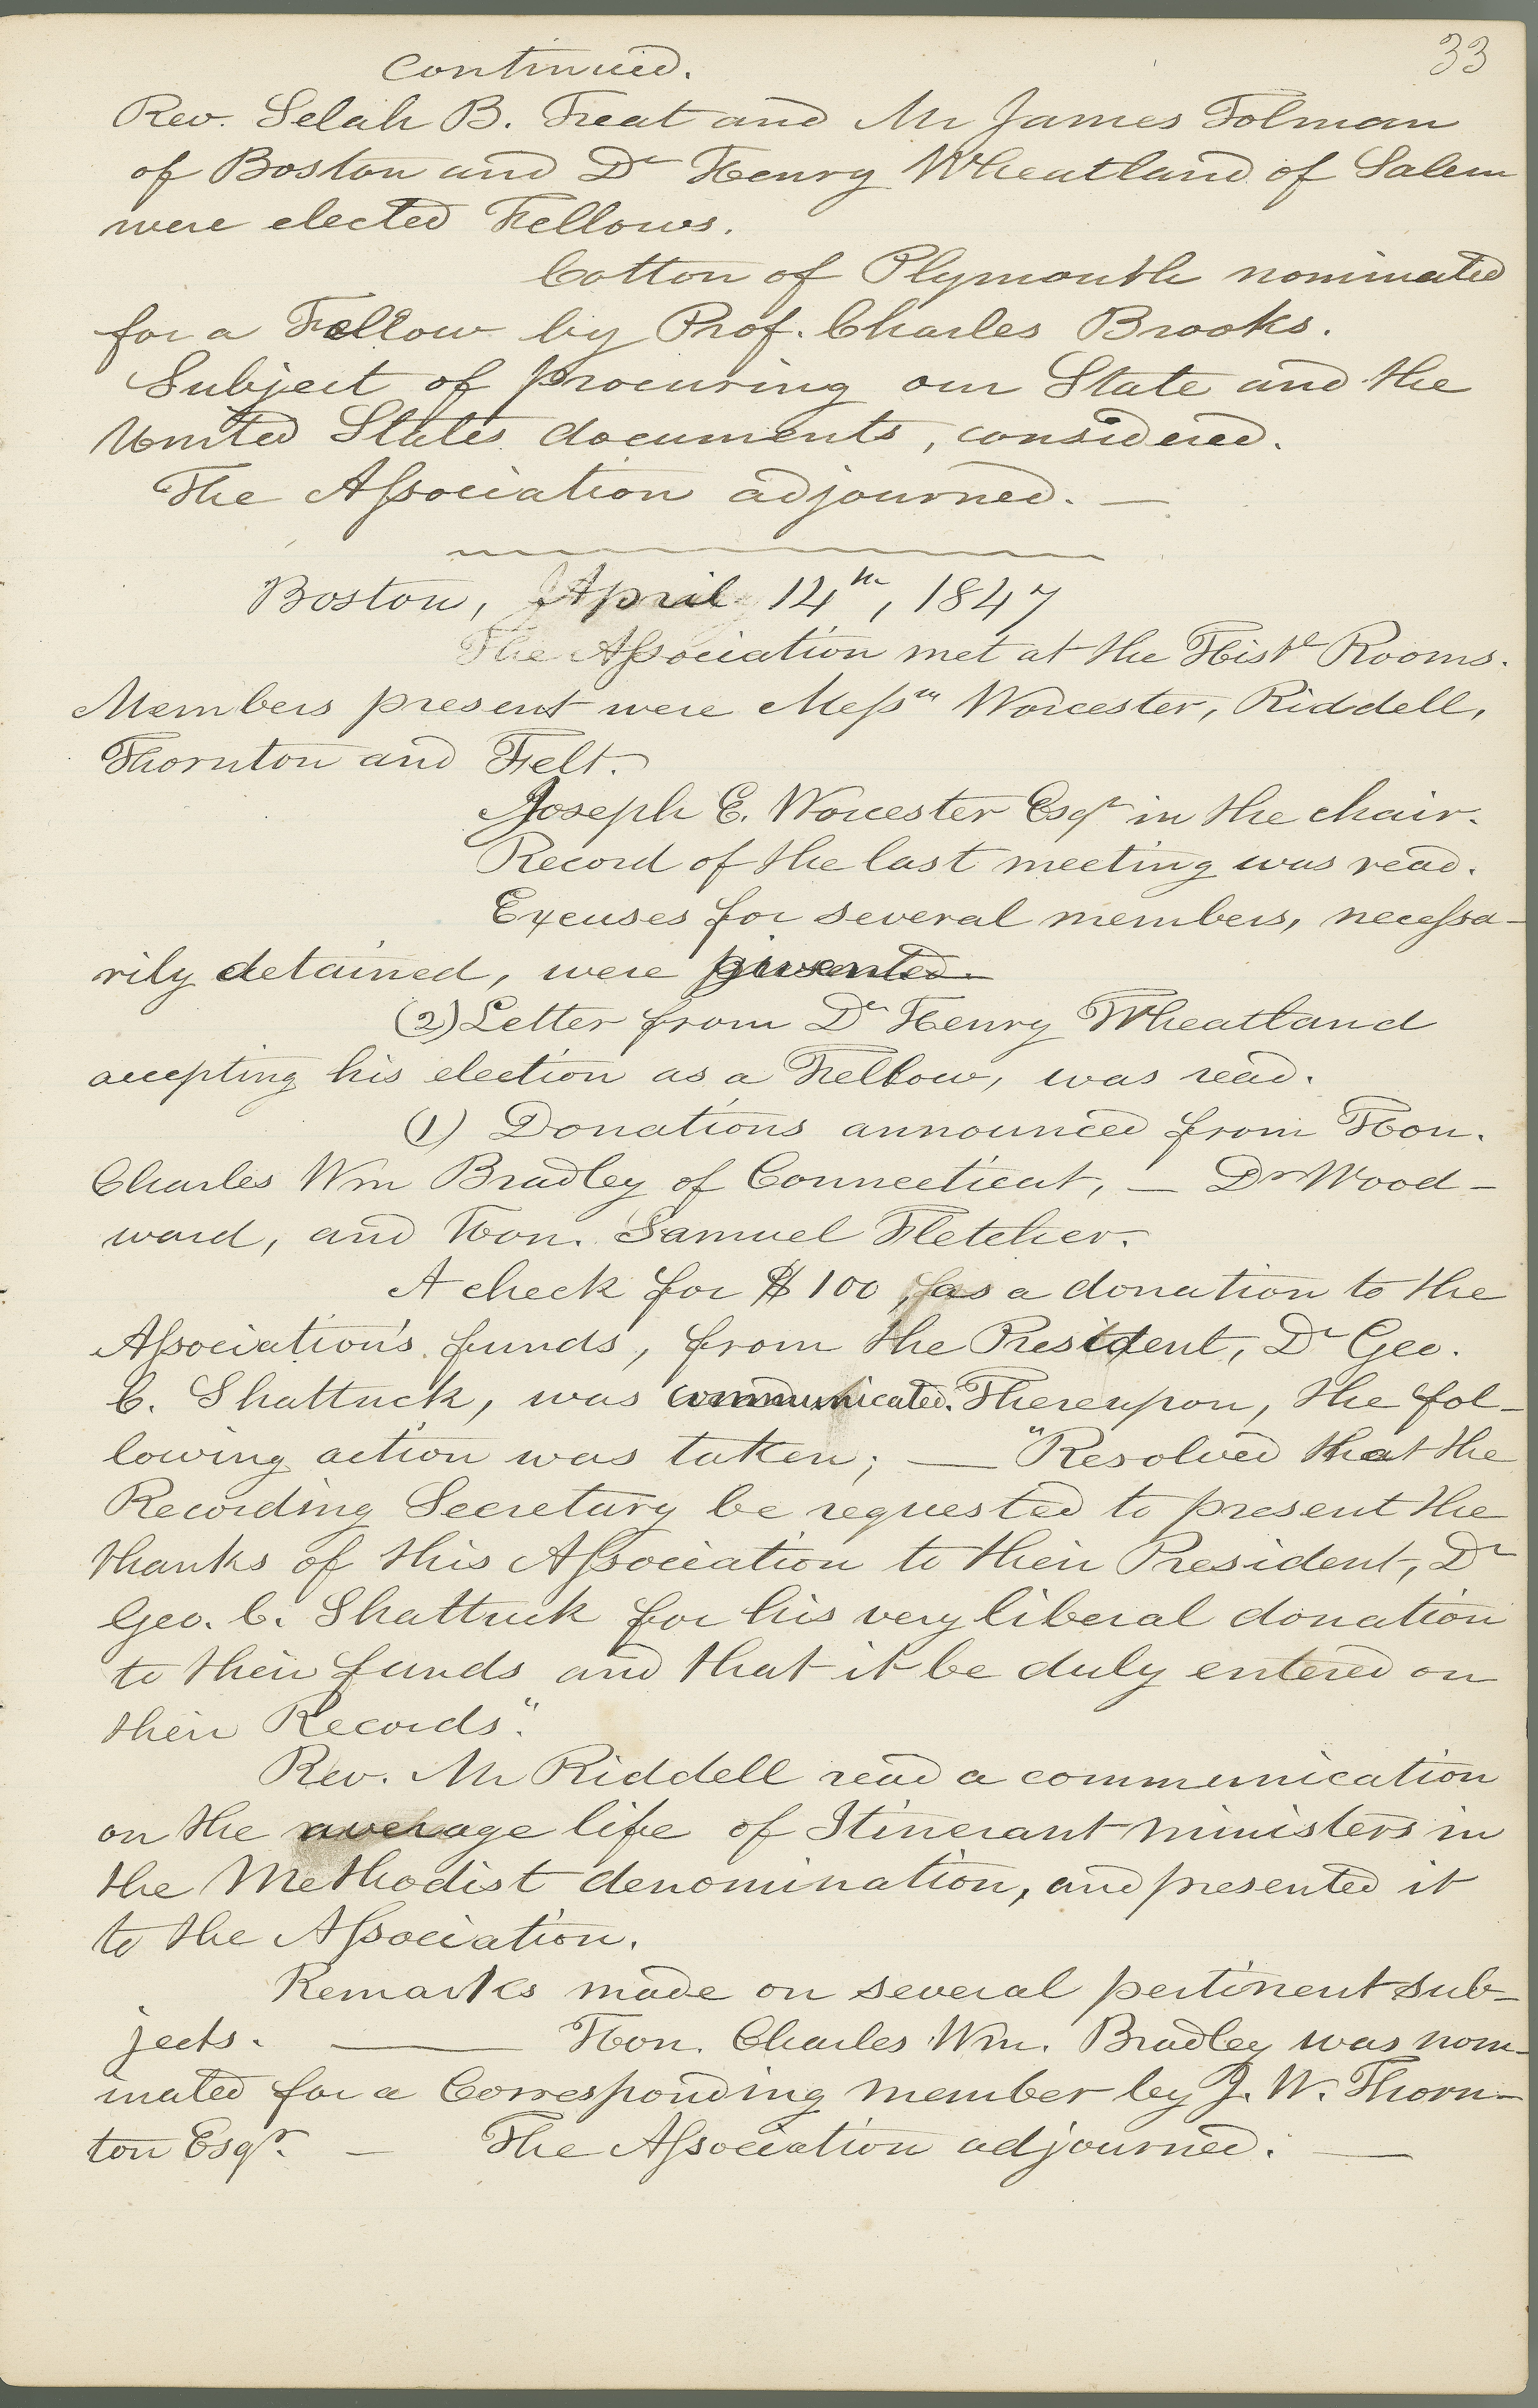 33
continued.
Rev. Selah B. Treat and Mr James Tolman
of Boston and Dr Henry Wheatland of Salem
were elected Fellows.
Cotton of Plymouth nominated
for a Fellow by Prof. Charles Brooks.
Subject of procuring our State and the
United States documents, considered.
The Association adjourned. —
Boston, April 14th, 1847
The Association met at the Histl Rooms.
Members present were Messrs Worcester, Riddell,
Thornton and Felt.
Joseph E. Worcester Esqr in the chair.
Record of the last meeting was read.
Excuses for several members, necessa-
rily detained, were
(2) Letter from Dr Henry Wheatland
accepting his election as a Fellow, was read.
(1) Donations announced from Hon.
Charles Wm Bradley of Connecticut, — Dr Wood-
ward, and Hon. Samuel Fletcher.
A check for $100, as a donation to the
Association's funds, from the President, Dr Geo.
C. Shattuck, was communicated. Thereupon, the fol-
lowing action was taken; — "Resolved that the
Recording Secretary be requested to present the
thanks of this Association to their President, Dr
Geo. C. Shattuck for his very liberal donation
to their funds and that it be duly entered on
their Records".
Rev. Mr Riddell read a communication
on the average life of Itinerant ministers in
the Methodist denomination, and presented it
to the Association.
Remarks made on several pertinent sub-
jects. — Hon. Charles Wm. Bradley was nom-
inated for a Corresponding member by J. W. Thorn-
ton Esqr. — The Association adjourned. —